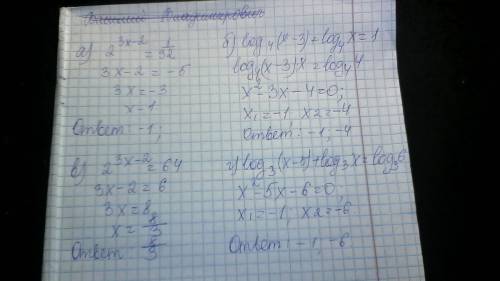 а) 2^{3x-2} = 1/32
3x-2 = -5
3x = -3
x-1
Ответ: -1;
б) log₄(x-3)+log₄x=1
log₄(x-3)x=log₄4
x²-3x-4=0;
x₁=-1, x2=-4
Ответ: -1, -4
в) 2^{3x-2}=64
3x-2=6
3x=8
x=8/3
Ответ 8/3
г) log₃(x-5)+log₃x=log₃6
x²-5x-6=0
x₁=-1, x2=-6
Ответ: -1, -6